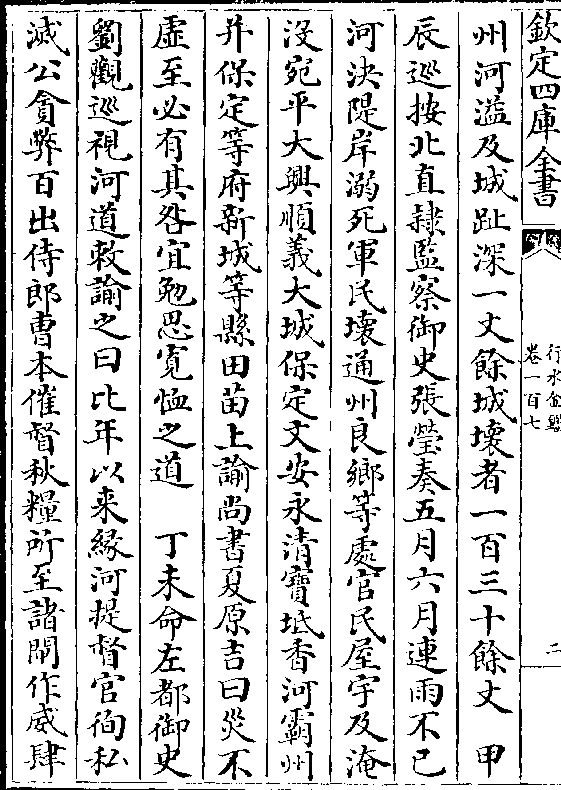 欽定四庫全書
行水金鑑
卷一百七
二
州河溢及城趾深一丈餘城壞者一百三十餘丈　甲
辰巡按北直隸監察御史張瑩奏五月六月連雨不已
河決隄岸溺死軍民壞通州良鄉等處官民屋宇及淹
沒宛平大興順義大城保定文安永清寶坻香河霸州
并保定等府新城等縣田苗上諭尚書夏原吉曰災不
虛至必有其咎宜勉思寬恤之道　丁未命左都御史
劉觀巡視河道敕諭之曰比年以来緣河提督官徇私
滅公貪弊百出侍郎曹本催督秋糧所至諸閘作威肆